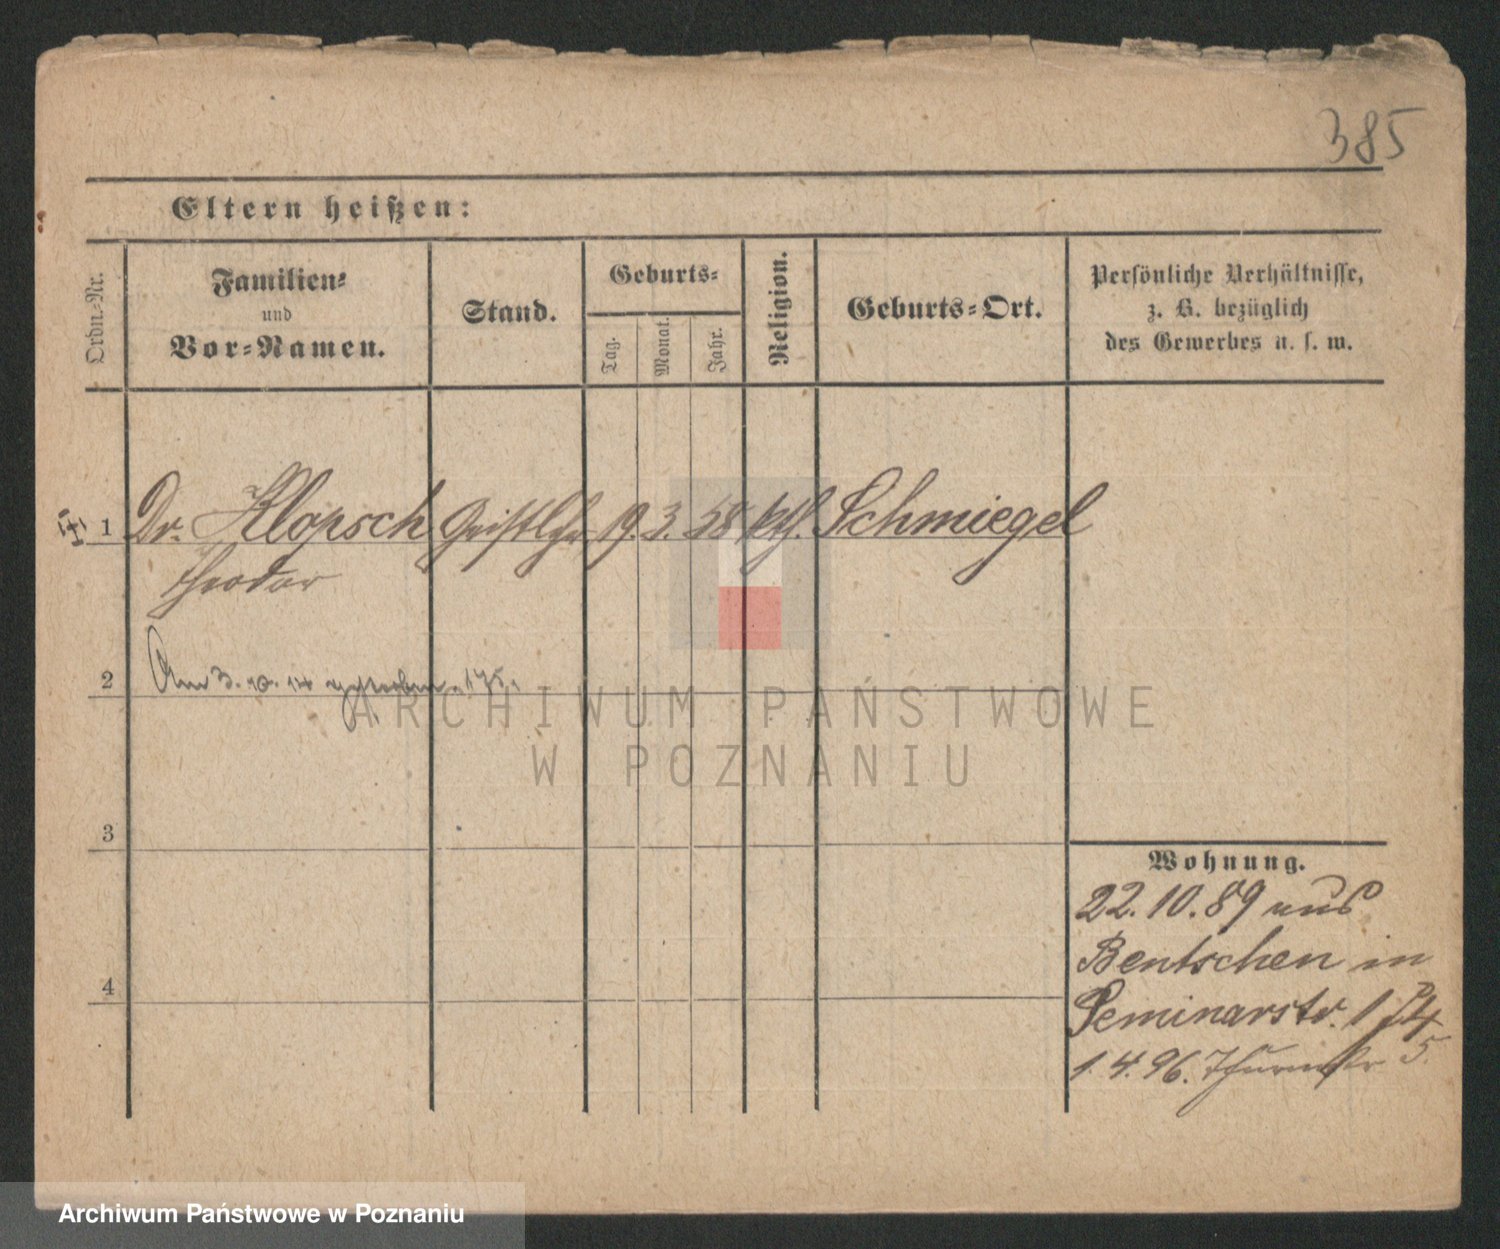 385
Eltern heißen:
Ordn.-Nr.
Familien-
und
Vor-Namen.
Stand.
Geburts-
Tag.
Monat.
Jahr.
Religion.
Geburts-Ort.
Persönliche Verhältnisse,
z. B. bezüglich
des Gewerbes u. s. w.
1 Dr. Klopsch Geistlicher 19. 3. 58 ktl. Schmiegel
Theodor
2 Am 3. 10. 14
3
4
Wohnung.
22.10.89 aus
Bentschen in
Seminarstr. 1
1.4.96. Thurmstr 5.
ARCHIWUM PAŃSTWOWE
W POZNANIU
Archiwum Państwowe w Poznaniu